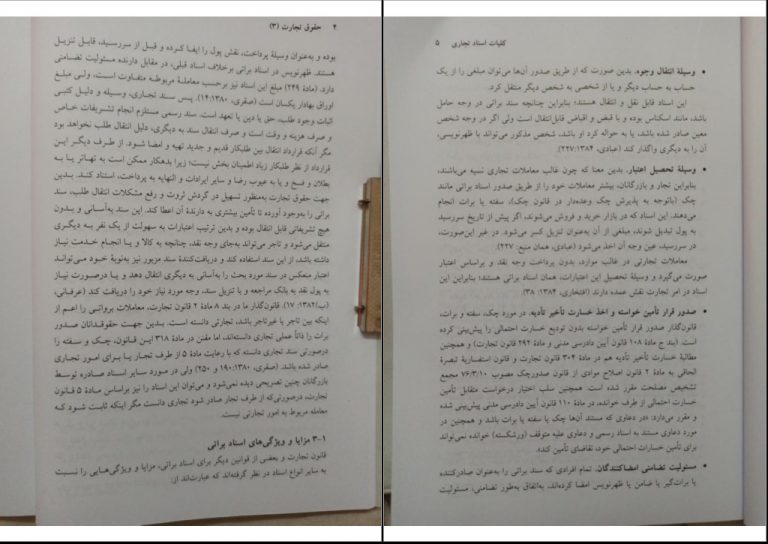 ۴ حقوق تجارت (۳)
بوده و به‌عنوان وسیلهٔ پرداخت، نقش پول را ایفا کرده و قبل از سررسید، قابل تنزیل
هستند. ظهرنویس در اسناد براتی برخلاف اسناد قبلی، در مقابل دارنده مسئولیت تضامنی
دارد. (مادهٔ ۲۴۹) مبلغ این اسناد نیز برحسب معاملهٔ مربوطه متفاوت است، ولی مبلغ
اوراق بهادار یکسان است (صقری، ۱۴:۱۳۸۰). پس سند تجاری، وسیله و دلیل کتبی
اثبات وجود طلب، حق یا دین یا تعهد است. سند رسمی مستلزم انجام تشریفات خاص
و صرف هزینه و وقت است و صرف انتقال سند به دیگری، دلیل انتقال طلب نخواهد بود
مگر آنکه قرارداد انتقال بین طلبکار قدیم و جدید تهیه و امضا شود. از طرف دیگر این
قرارداد از نظر طلبکار زیاد اطمینان بخش نیست؛ زیرا بدهکار ممکن است به تهاتر یا به
بطلان و فسخ و یا به عیوب رضا و سایر ایرادات و التهایه به پرداخت، استناد کند. بدین
جهت حقوق تجارت به‌منظور تسهیل در گردش ثروت و رفع مشکلات انتقال طلب، سند
براتی را به‌وجود آورده تا تأمین بیشتری به دارندهٔ آن اعطا کند. این سند به‌آسانی و بدون
هیچ تشریفاتی قابل انتقال بوده و بدین ترتیب اعتبارات به سهولت از یک نفر به دیگری
منتقل می‌شود و تاجر می‌تواند به‌جای وجه نقد، چنانچه به کالا و یا انجام خدمت نیاز
داشته باشد، از این سند استفاده کند و دریافت‌کنندهٔ سند مزبور نیز به‌نوبهٔ خود می‌تواند
اعتبار منعکس در سند مورد بحث را به‌آسانی به دیگری انتقال دهد و یا درصورت نیاز
به پول نقد به بانک مراجعه و با تنزیل سند، وجه مورد نیاز خود را دریافت کند (عرفانی،
(ب)۱۳۸۲: ۱۷). قانون‌گذار ما در بند ۸ مادهٔ ۲ قانون تجارت، معاملات برواتی را اعم از
اینکه بین تاجر یا غیرتاجر باشد، تجارتی دانسته است. بدین جهت حقوقدانان صدور
برات را ذاتاً عملی تجاری دانسته‌اند، اما مقنن در مادهٔ ۳۱۸ این قانون، چک و سفته را
درصورتی سند تجاری دانسته که با رعایت مادهٔ ۵ از طرف تجار یا برای امور تجاری
صادر شده باشد. (صقری، ۱۹۰:۱۳۸۰ و ۲۵۰) ولی در مورد سایر اسناد صادره توسط
بازرگانان چنین تصریحی دیده نمی‌شود و می‌توان این اسناد را نیز براساس مادهٔ ۵ قانون
تجارت، درصورتی‌که از طرف تجار صادر شود تجاری دانست مگر اینکه ثابت شود که
معامله مربوط به امور تجارتی نیست.
۱-۳ مزایا و ویژگی‌های اسناد براتی
قانون تجارت و بعضی از قوانین دیگر برای اسناد براتی، مزایا و ویژگی‌هایی را نسبت
به سایر انواع اسناد در نظر گرفته‌اند که عبارت‌اند از:
کلیات اسناد تجاری ۵
• وسیلهٔ انتقال وجوه. بدین صورت که از طریق صدور آن‌ها می‌توان مبلغی را از یک
حساب به حساب دیگر و یا از شخصی به شخص دیگر منتقل کرد.
این اسناد قابل نقل و انتقال هستند؛ بنابراین چنانچه سند براتی در وجه حامل
باشد، مانند اسکناس بوده و با قبض و اقباض قابل‌انتقال است ولی اگر در وجه شخص
معین صادر شده باشد، یا به حواله کرد او باشد، شخص مذکور می‌تواند با ظهرنویسی،
آن را به دیگری واگذار کند (عبادی، ۲۲۷:۱۳۸۴).
• وسیلهٔ تحصیل اعتبار. بدین معنا که چون غالب معاملات تجاری نسیه می‌باشند،
بنابراین تجار و بازرگانان، بیشتر معاملات خود را از طریق صدور اسناد براتی مانند
چک (باتوجه به پذیرش چک وعده‌دار در قانون چک)، سفته یا برات انجام
می‌دهند. این اسناد که در بازار خرید و فروش می‌شوند، اگر پیش از تاریخ سررسید
به پول تبدیل شوند، مبلغی از آن به‌عنوان تنزیل کسر می‌شود. در غیر این‌صورت،
در سررسید، عین وجه آن اخذ می‌شود (عبادی، همان منبع: ۲۲۷).
معاملات تجارتی در غالب موارد، بدون پرداخت وجه نقد و براساس اعتبار
صورت می‌گیرد و وسیلهٔ تحصیل این اعتبارات، همان اسناد براتی هستند؛ بنابراین این
اسناد در امر تجارت نقش عمده دارند (افتخاری، ۱۳۸۴: ۳۸).
• صدور قرار تأمین خواسته و اخذ خسارت تأخیر تأدیه. در مورد چک، سفته و برات،
قانون‌گذار صدور قرار تأمین خواسته بدون تودیع خسارت احتمالی را پیش‌بینی کرده
است. (بند ج مادهٔ ۱۰۸ قانون آیین دادرسی مدنی و مادهٔ ۲۹۲ قانون تجارت) و همچنین
مطالبهٔ خسارت تأخیر تأدیه هم در مادهٔ ۳۰۴ قانون تجارت و قانون استفساریهٔ تبصرهٔ
الحاقی به مادهٔ ۲ قانون اصلاح موادی از قانون صدورچک مصوب ۷۶/۳/۱۰ مجمع
تشخیص مصلحت مقرر شده است. همچنین سلب اختیار درخواست متقابل تأمین
خسارت احتمالی از طرف خوانده، در مادهٔ ۱۱۰ قانون آیین دادرسی مدنی پیش‌بینی شده
و مقرر می‌دارد: «در دعاوی که مستند آن‌ها چک یا سفته یا برات باشد و همچنین در
مورد دعاوی مستند به اسناد رسمی و دعاوی علیه متوقف (ورشکسته) خوانده نمی‌تواند
برای تأمین خسارات احتمالی خود، تقاضای تأمین کند».
• مسئولیت تضامنی امضاکنندگان. تمام افرادی که سند براتی را به‌عنوان صادرکننده
یا برات‌گیر یا ضامن یا ظهرنویس امضا کرده‌اند، به‌اتفاق به‌طور تضامنی، مسئولیت